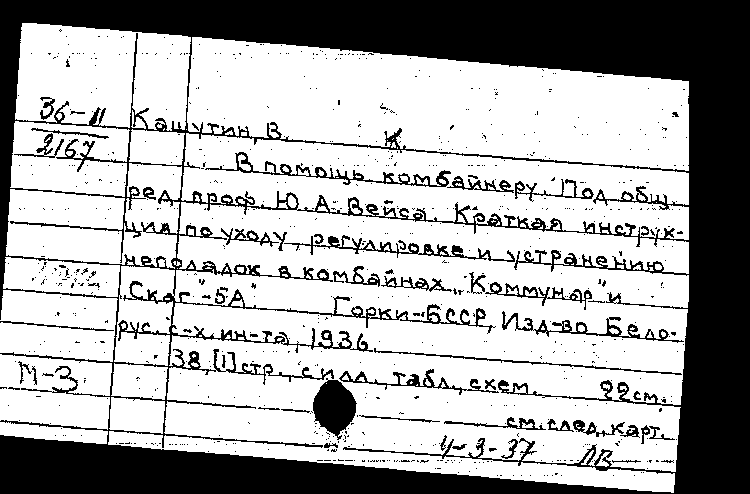 36-11
2167
Кашутин, В. К.
В помощь комбайнеру. Под общ.
ред. проф. Ю. А. Вейса. Краткая инструк-
ция по уходу, регулировке и устранению
неполадок в комбайнах „Коммунар" и
„Скаг"-5А". Горки-БССР, Изд-во Бело-
рус. с-х. ин-та, 1936.
38, [1] стр., с илл., табл., схем. 22 см.
М-3
см. след. карт.
4-3-37 ЛВ